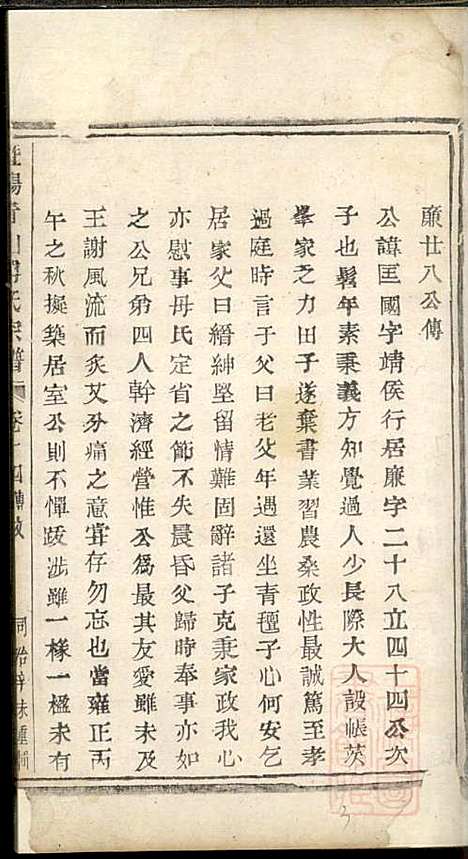 廉廿八公傳
公諱匡國字靖侯行居廉字二十八立四十四公次
子也髫年素秉義方知覺過人少長際大人設帳茨
舉家之力田子遂棄書業習農桑政性最誠篤至孝
過庭時言于父曰老父年邁還坐青氊子心何安乞
居家父曰縉紳堅留情難固辭諸子克秉家政我心
亦慰事母氏定省之節不失晨昏父歸時奉事亦如
之公兄弟四人幹濟經營惟公為最其友愛雖未及
王謝風流而炙艾分痛之意宜存勿忘也當雍正丙
午之秋擬築居室公則不憚跋涉雖一椽一楹未有
氏宗譜
卷十四傳
同治辛未重